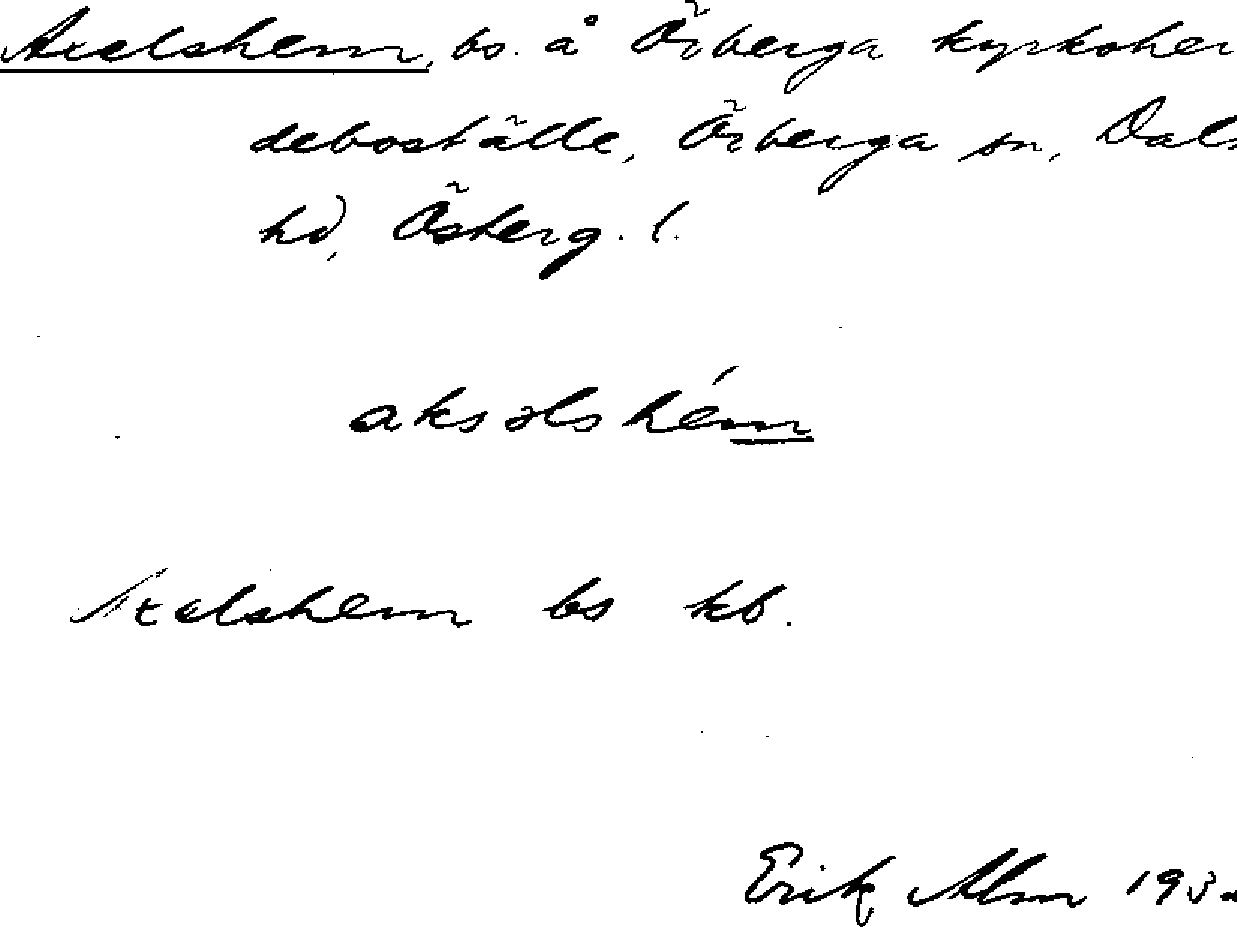 Axelshem, bs. å Örberga kyrkoher
deboställe, Örberga sn, Dals
hd, Österg. l.
aksəlshém
Axelshem bs kb.
Erik Alm